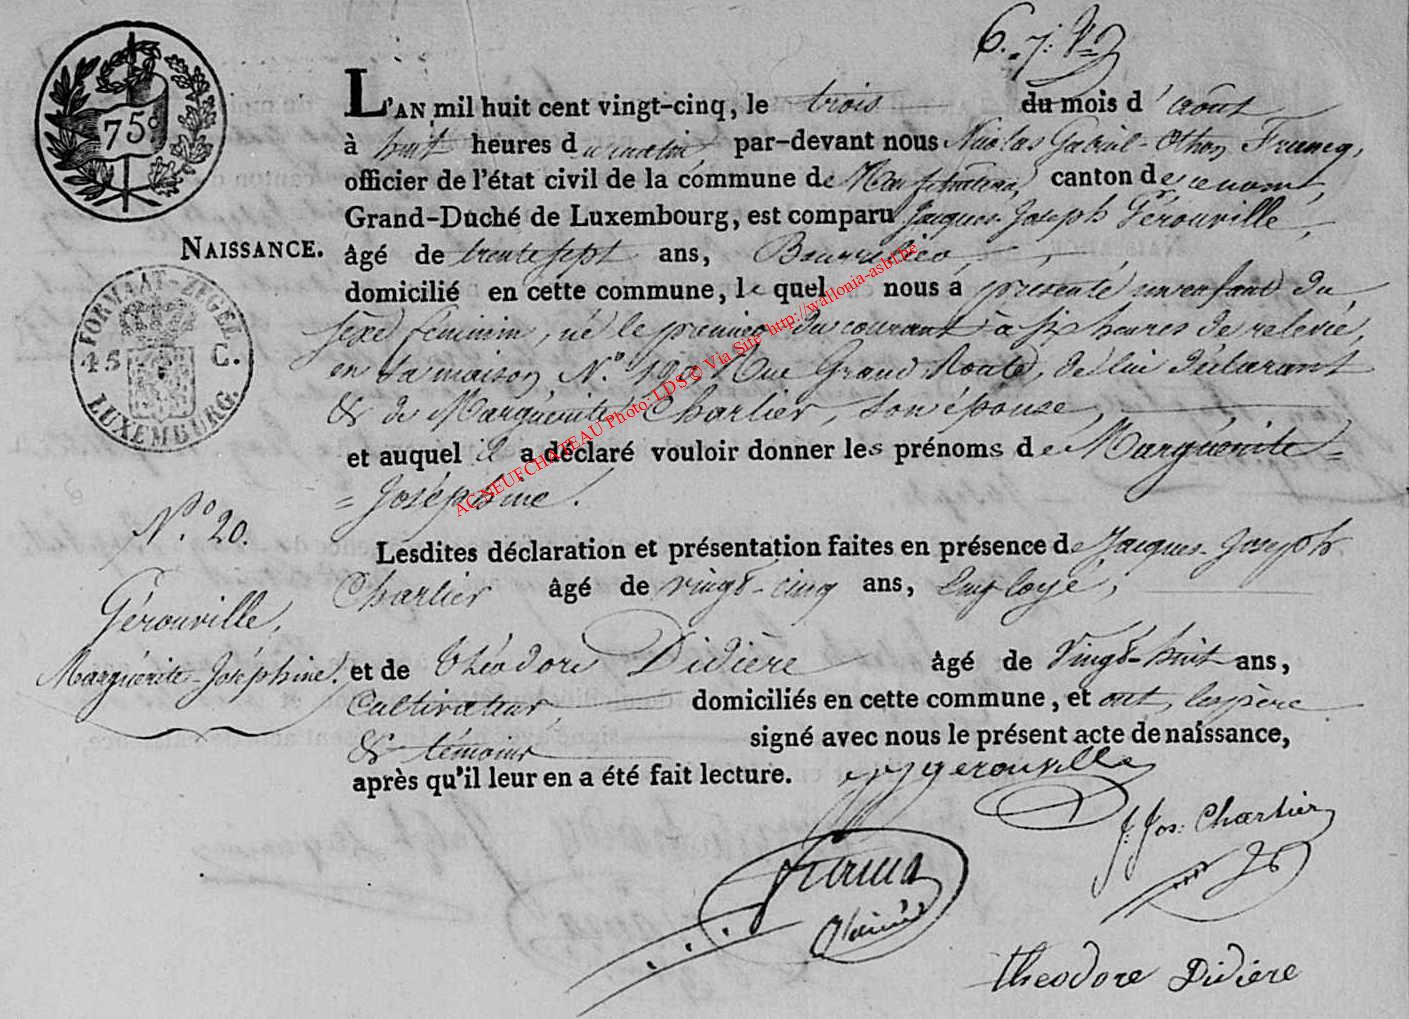 6. 7:
75 c
L'AN mil huit cent vingt-cinq, le trois du mois d'août
à huit heures du matin, par-devant nous Nicolas Gabriel-Othon
officier de l'état civil de la commune de canton de
Grand-Duché de Luxembourg, est comparu Jacques Joseph Gérouville,
NAISSANCE.
âgé de trente sept ans,
domicilié en cette commune, lequel nous a présenté un enfant du
FORMAAT ZEGEL
45 C.
LUXEMBURG.
sexe féminin, né le premier du courant à six heures de relevée,
en sa maison N.º Rue Grand Route, de lui déclarant
& de Marguérite Charlier, son épouse,
et auquel il a déclaré vouloir donner les prénoms de Marguérite=
=Joséphine.
AG NEUFCHATEAU Photo: LDS © Via Site http://wallonia-asbl.be
N.º 20.
Gérouville,
Marguérite-Joséphine.
Lesdites déclaration et présentation faites en présence de Jacques-Joseph
Charlier âgé de vingt-cinq ans, Employé,
et de Théodore Didière âgé de Vingt-huit ans,
Cultivateur, domiciliés en cette commune, et ont, les père
& témoins signé avec nous le présent acte de naissance,
après qu'il leur en a été fait lecture.
JJ gerouville
J: Jos: Charlier
theodore Didiere